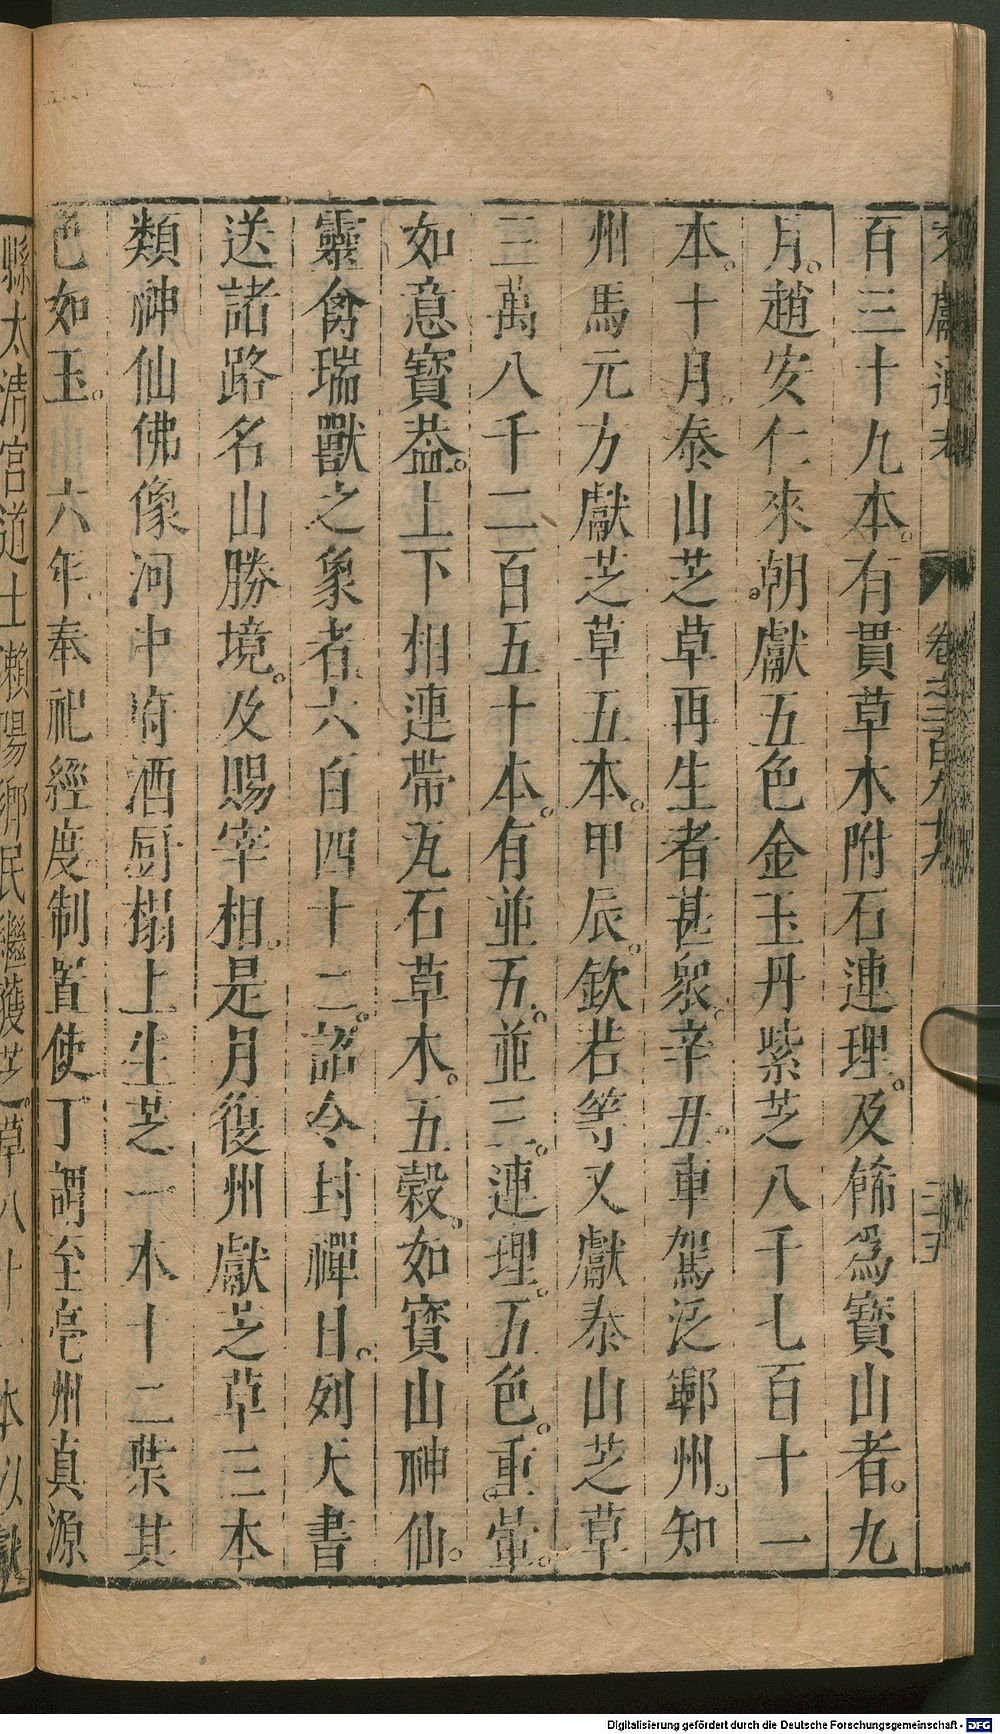 文獻通考 卷之二百九十九 二十五
百三十九本。有貫草木附石連理。及飾爲寶山者。九
月。趙安仁來朝。獻五色金玉丹紫芝八千七百十一
本。十月。泰山芝草再生者甚衆。辛丑。車駕泛鄆州。知
州馬元方獻芝草五本。甲辰。欽若等又獻泰山芝草
三萬八千二百五十本。有並五。並三。連理。五色。重暈。
如意寶蓋。上下相連帶瓦石草木。五穀。如寶山神仙。
靈禽瑞獸之象者。六百四十二。詔令封禪日。列天書
送諸路名山勝境。及賜宰相。是月復州獻芝草三本
類神仙佛像河中府酒厨榻上生芝一本十二葉其
色如玉。六年。奉祀經度制置使丁謂至亳州真源
縣太清宮道士賴陽鄉民繼獲芝草八十 本以獻
Digitalisierung gefördert durch die Deutsche Forschungsgemeinschaft - DFG